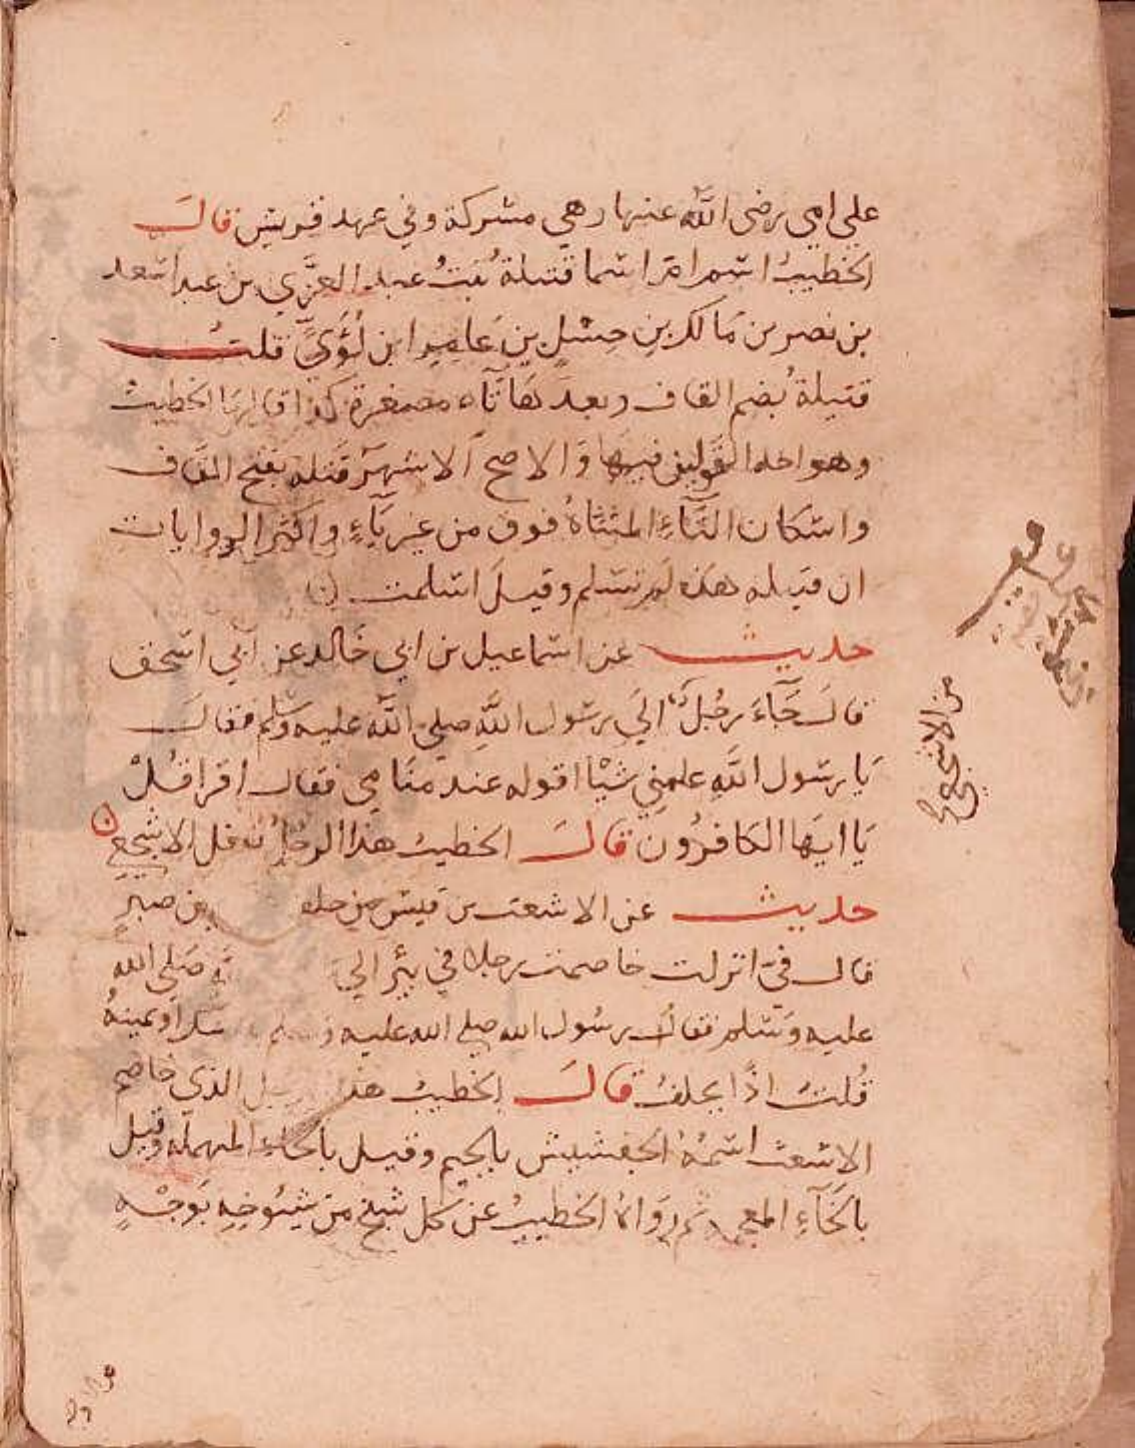 علي امي رضي الله عنها وهي مشركة وفي عهد قريش قال
الخطيب اسم ام اسما قتيلة بنت عبد العزي بن عبد اسعد
بن نصر بن مالك بن حسل بن عامر ابن لؤي قلت
قتيلة بضم القاف وبعدها تاء مصغرة كذا قالها الخطيب
وهو احد القولين فيها والاصح الاشهر قتلة بفتح القاف
واسكان التاء المثناة فوق من غير ياء واكثر الروايات
ان قتيله هذه لم تسلم وقيل اسلمت
حديث عن اسماعيل بن ابي خالد عن ابي اسحق
قال جاء رجل الي رسول الله صلي الله عليه وسلم فقال
يا رسول الله علمني شيأ اقوله عند منامي فقال اقرا قل
يا ايها الكافرون قال الخطيب هذا الرجل نوفل الاشجعي
حديث عن الاشعث بن قيس من حلف يمين صبر
قال في انزلت خاصمت رجلا في بئر الي صلي الله
عليه وسلم فقال رسول الله صلي الله عليه وسلم او يمينه
قلت اذا يحلف قال الخطيب هذا الرجل الذي خاصم
الاشعث اسمه الجفشيش بالجيم وقيل بالحاء المهمله وقيل
بالخاء المعجمه ثم رواه الخطيب عن كل شيخ من شيوخه بوجه
من الاشجعي